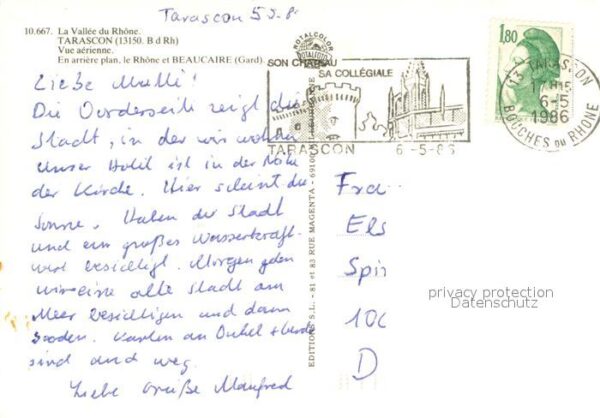 Tarascon 5.5.8
10.667. La Vallée du Rhône.
TARASCON (13150. B d Rh)
Vue aérienne.
En arrière plan, le Rhône et BEAUCAIRE (Gard).
ROTALCOLOR
SON CHATEAU
SA COLLÉGIALE
TARASCON 6-5-86
1,80
13 TARASCON
6-5
1986
BOUCHES DU RHÔNE
Liebe Mutti!
Die Vorderseite zeigt die
Stadt, in der wir wohnen
unser Hotel ist in der Nähe
der Kirche. Hier scheint die
Sonne. Haben die Stadt
und ein großes Wasserkraft-
werk besichtigt. Morgen gehen
wir eine alte Stadt am
Meer besichtigen und dann
baden. Karten an Onkel +
sind auch weg.
Liebe Grüße Manfred
EDITIONS S.L. - 81 et 83 RUE MAGENTA - 69100
Fra
Els
Spi
10
D
privacy protection
Datenschutz